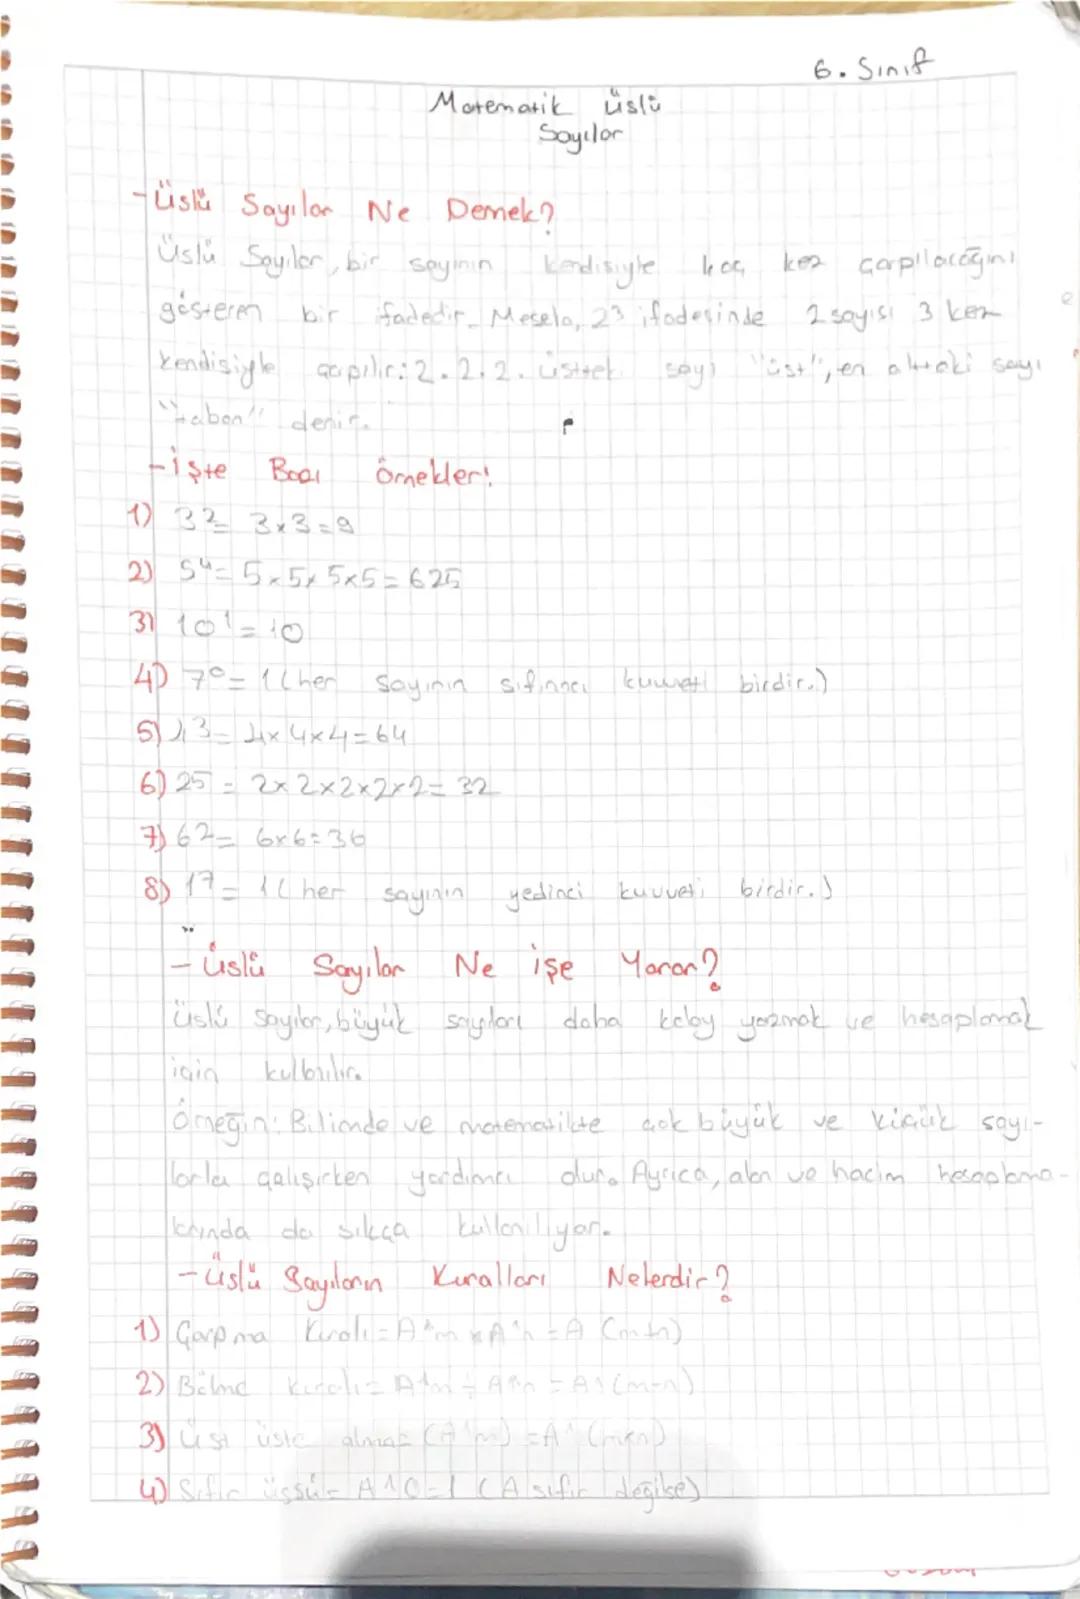 6. Sınıf
Matematik üslü
Sayılar
-Üslü Sayılar Ne Demek?
Üslü Sayılar, bir sayının kendisiyle kaç kez çarpılacağını
gösteren bir ifadedir. Mesela, 2³ ifadesinde 2 sayısı 3 kez
kendisiyle çapılır: 2.2.2. üstteki sayı "üst", en alttaki sayı
"taban" denir.
-İşte Bazı Örnekler!
1) 3²= 3x3=9
2) 5⁴= 5x5x5x5=625
3) 10¹=10
4) 7⁰= 1 (her sayının sıfırıncı kuvveti birdir.)
5) 43= 4x4x4=64
6) 25 = 2x2x2x2x2= 32
7) 62= 6x6=36
8) 17= 1 ( her sayının yedinci kuvveti birdir.)
- Üslü Sayılar Ne işe Yarar?
Üslü Sayılar, büyük sayıları daha kolay yazmak ve hesaplamak
için kullanılır.
Örneğin: Bilimde ve matematikte çok büyük ve küçük sayı-
larla çalışırken yardımcı olur. Ayrıca, alan ve hacim hesaplama-
larında da sıkça kullanılıyor.
-Üslü Sayıların Kuralları Nelerdir?
1) Çarpma Kuralı = A^m x A^n = A (m+n)
2) Bölme Kuralı = A^m ÷ A^n = A^(m-n)
3) Üst üste alma= (A^m) =A^ (mxn)
4) Sıfır üssü= A^0=1 (A sıfır değilse)